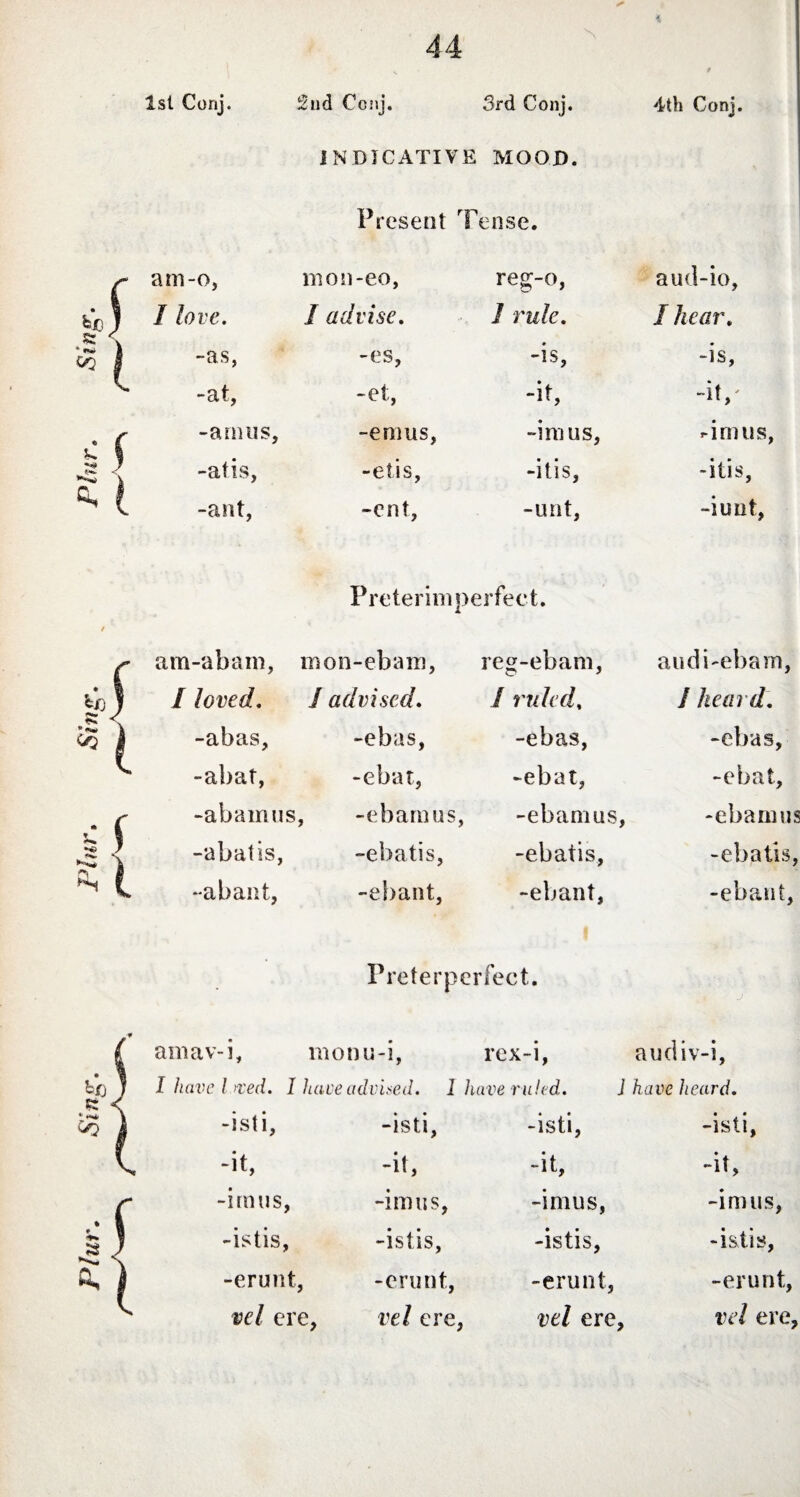 44
1st Conj. 2nd Conj. 3rd Conj. 4th Conj.
INDICATIVE MOOD.
Present Tense.
Sing. am-o, mon-eo, reg-o, aud-io,
I love. I advise. I rule. I hear.
-as, -es, -is, -is,
-at, -et, -it, -it,
Plur. -amus, -emus, -imus, -imus,
-atis, -etis, -itis, -itis,
-ant, -ent, -unt, -iunt,
Preterimperfect.
Sing. am-abam, mon-ebam, reg-ebam, audi-ebam,
I loved. I advised. I ruled, I heard.
-abas, -ebas, -ebas, -ebas,
-abat, -ebat, -ebat, -ebat,
Plur. -abamus, -ebamus, -ebamus, -ebamus
-abatis, -ebatis, -ebatis, -ebatis,
-abant, -ebant, -ebant, -ebant,
Preterperfect.
Sing. amav-i, monu-i, rex-i, audiv-i,
I have l ved. I have advised. I have ruled. I have heard.
-isti, -isti, -isti, -isti,
-it, -it, -it, -it,
Plur. -imus, -imus, -imus, -imus,
-istis, -istis, -istis, -istis,
-erunt, -erunt, -erunt, -erunt,
vel ere, vel ere, vel ere, vel ere,